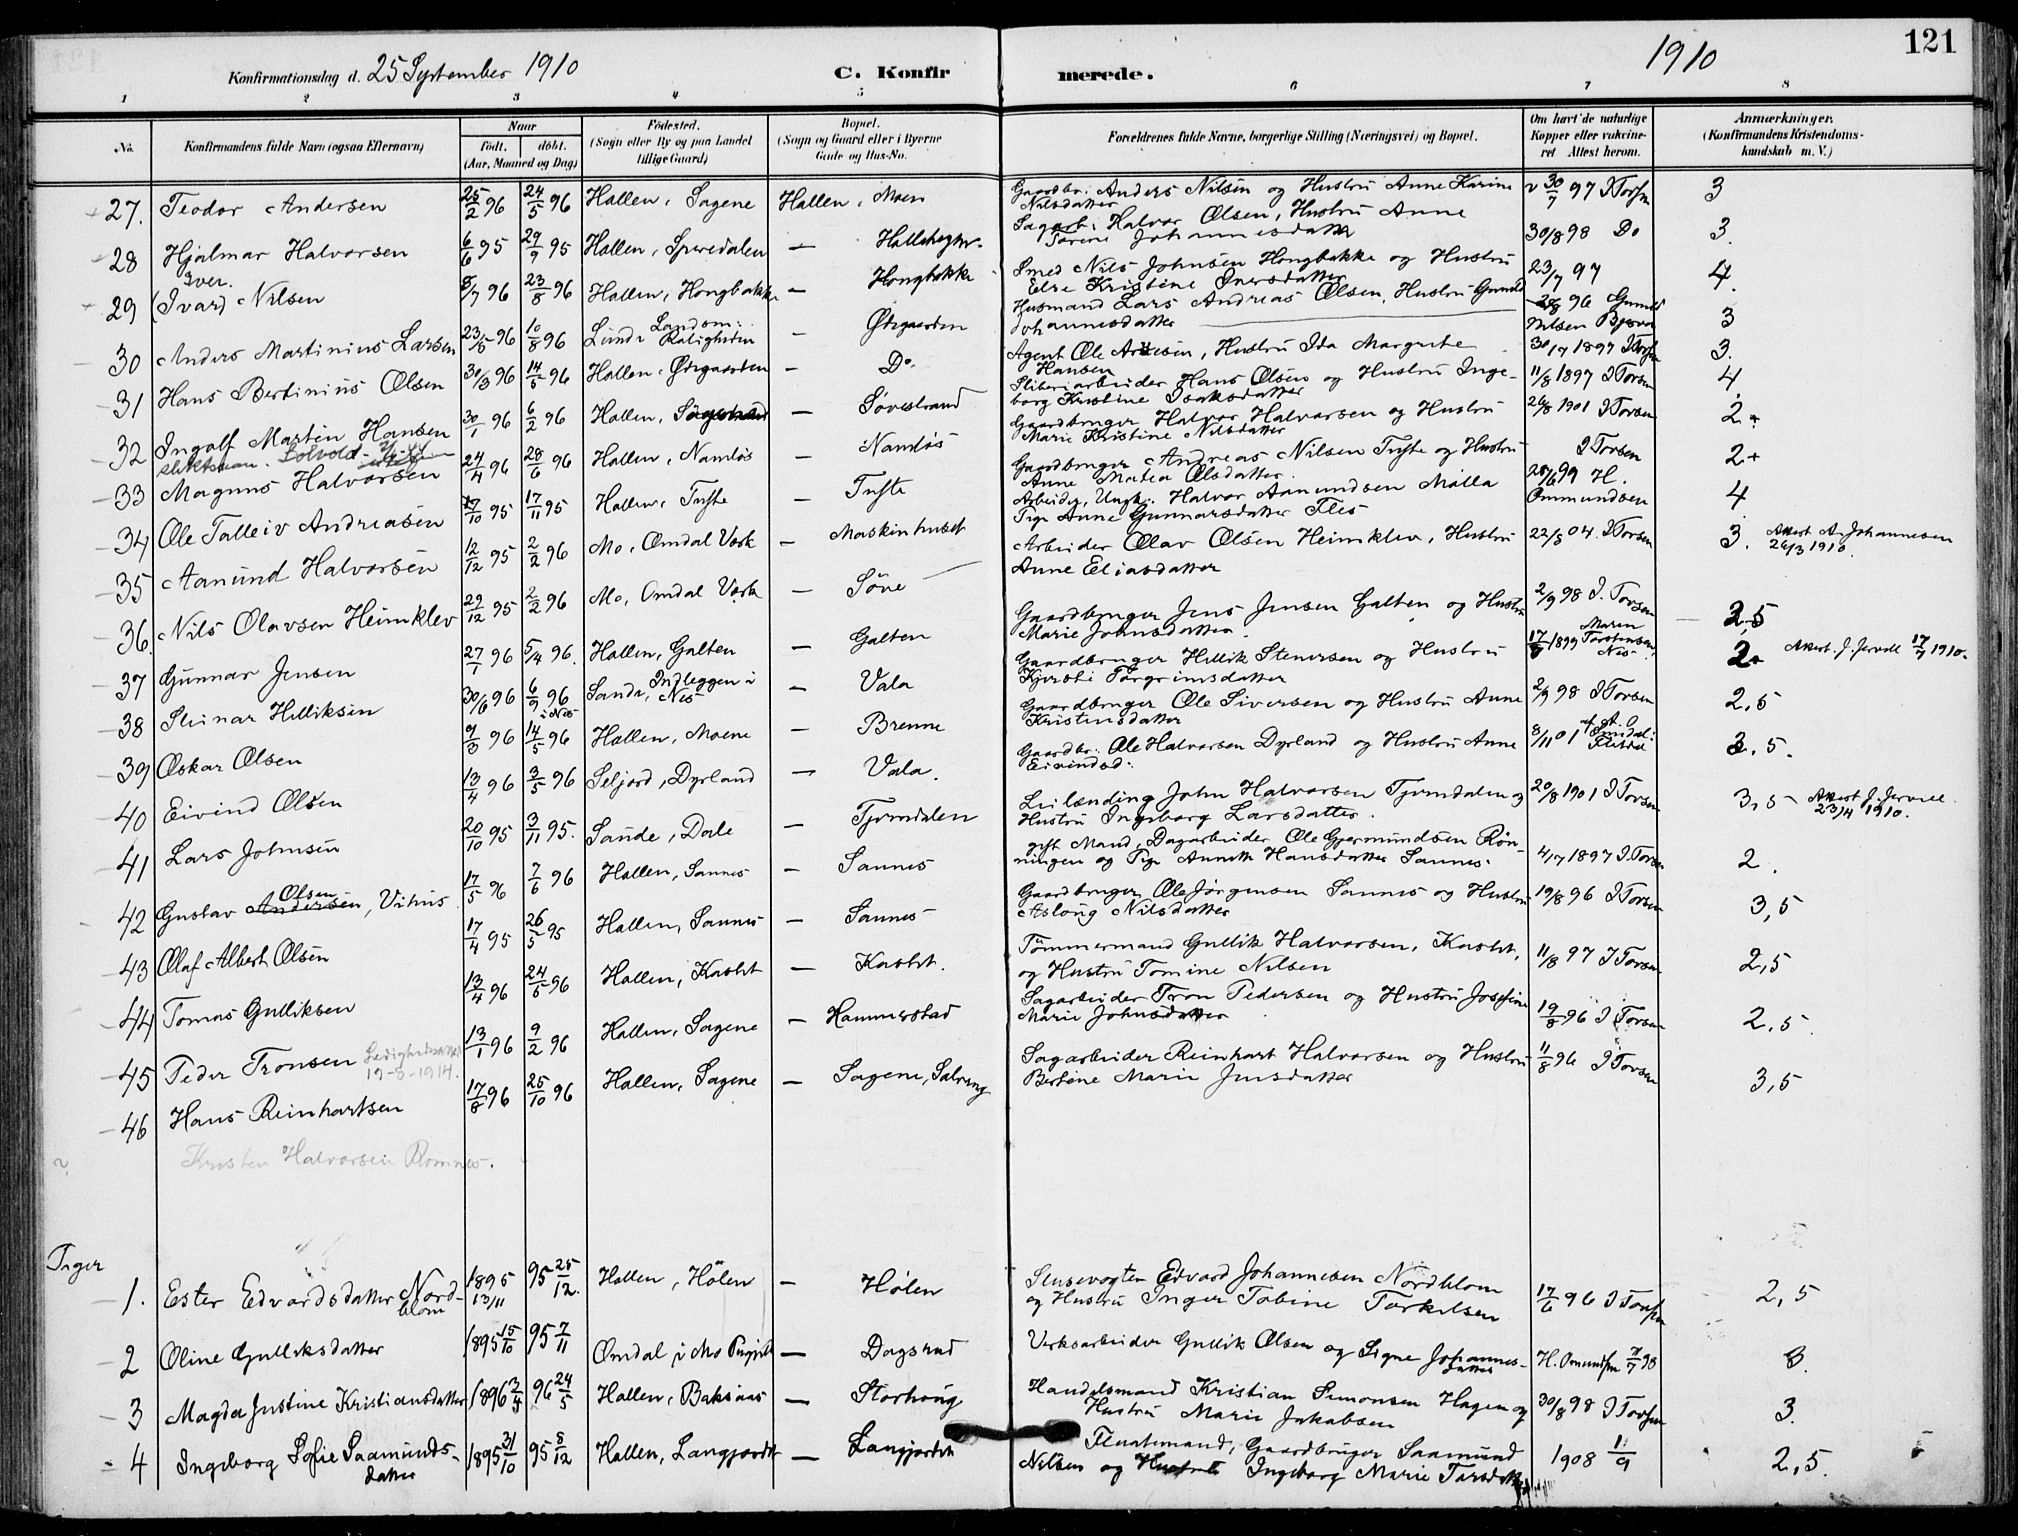 Konfirmationsdag d. 25 September 1910 C. Konfir merede. 1910 121
1 2 3 4 5 6 7 8
No. Konfirmandens fulde Navn (ogsaa Efternavn) Naar født. døbt. (Aar, Maaned og Dag) Fødested. (Sogn eller By og paa Landet tillige Gaard) Bopæl. (Sogn og Gaard eller i Byerne Gade og Hus-No. Forældrenes fulde Navne, borgerlige Stilling (Næringsvei) og Bopæl. Om havt de naturlige Kopper eller vakcineret Attest herom. Anmærkninger. (Konfirmandens Kristendomskundskab m. V.)
27. Teodor Andersen 25/2 96 24/5 96 Hollen, Sagene Hollen, Moen Gaardbr: Anders Nilsen og Hustru Anne Karine Nilsdatter v 30/7 97 3
28 Hjalmar Halvorsen 6/6 95 29/9 95 Hollen, — Sagarb: Halvor Olsen, Hustru Anne Torine Johannesdatter 30/8 98 Do 3.
29 Iver. (Ivar) Nilsen 8/7 96 23/8 96 Hollen, Hongbakke — Hongbakke Smed Nils Johnsen Hongbakke og Hustru Else Kristine Iversdatter 23/7 97 4.
30 Anders Martinius Larsen 23/5 96 10/8 96 — Øygaarden Husmand Lars Andreas Olsen, Hustru Gunild Johannesdatter 96 Gunild Nilsen 3
31 Hans Bertinius Olsen 30/3 96 14/5 96 Hollen, Øygaarden — Do. Agent Ole, Hustru Ida Margrethe Hansen 30/7 1897 I Torsen 3.
32 Ingolf Martin Hansen 30/1 96 6/2 96 Hollen, — Søvestrand Sliberiarbeider Hans Olsen og Hustru Ingeborg Kristine Isaksdatter 11/8 1897 I Torsen 4
33 Magnus Halvorsen 24/4 96 28/6 96 Hollen, Namløs — Namløs Gaardbruger Halvor Halvorsen og Hustru Marie Kristine Nilsdatter 26/8 1901 I Torsen 2+
34 Ole Talleiv Andreasen 17/10 95 17/11 95 Hollen, Tufte — Tufte Gaardbruger Andreas Nilsen Tufte og Hustru Anne Matea Olsdatter I Torsen 2+
35 Aanund Halvorsen 12/12 95 2/2 96 Mo, Omdal Værk — Maskinhuset Arbeider, Ungk: Halvor Aanundsen Malla Pige Anne Gunnarsdatter 99 H. Ommundsen 4
36. Nils Olavsen Heimklev 29/12 95 2/2 96 Mo, Omdal Værk — Søve Arbeider Olav Olsen Heimklev, Hustru Anne Eliasdatter 22/8 04. I Torsen 3. Attest A. Johannesen 26/3 1910.
37 Gunnar Jensen 27/1 96 5/4 96. Hollen, Galten — Galten Gaardbruger Jens Jensen Galten og Hustru Marie Johnsdatter. 2/9 98 I. Torsen 2,5
38 Steinar Helliksen 30/6 96 6/9 96 i Nes Sande, i Nes — Vala Gaardbruger Hellik Stenersen og Hustru Kjersti Torgrimsdatter 1899 Maren Torstensen Nes 2+ Attest. J. Jervell 17/7 1910.
39 Oskar Olsen 9/3 96 14/5 96 Hollen, Moene — Brenne Gaardbruger Ole Siversen og Hustru Anne Kristensdatter 2/9 98 I Torsen 2,5
40 Eivind Olsen 13/4 96 3/5 96 Seljord, Dyrland — Vala. Gaardbr: Ole Halvorsen Dyrland og Hustru Anne Eivindsd: 8/11 01 3,5.
41 Lars Johnsen 20/10 95 3/11 95. Saude, Dale — Tjomdalen Leilænding John Halvorsen Tjomdalen og Hustru Ingeborg Larsdatter. 20/8 1901 I Torsen 3,5 Attest J. Jervell 23/4 1910.
42 Gustav Andersen Olsen, Vitus 17/5 96 7/6 96 Hollen, Sannes — Sannes gift Mand, Dagarbeider Ole Gjermundsen Rønningen og Pige Anneth Hansdatter Sannes. 4/7 1897 I. Torsen 2.
43 Olaf Albert Olsen 17/4 95 26/5 95 Hollen, Sannes — Sannes Gaardbruger Ole Jørgensen Sannes og Hustru Aslaug Nilsdatter 19/8 96 I Torsen 3,5
44 Tomas Gulliksen 13/4 96 24/5 96 Hollen, Kastet — Kastet. Tømmermand Gullik Halvorsen, Kastet, og Hustru Tomine Nilsen 11/8 97 I Torsen 2,5
45 Peder Tronsen 13/1 96 9/2 96 Hollen, Sagene — Hammerstad Sagarbeider Tron Pedersen og Hustru Josefine Marie Johnsdatter 19/8 96 I Torsen 2,5.
46 Hans Reinhartsen 17/8 96 25/10 96 Hollen, Sagene — Sagene, Sagarbeider Reinhart Halvorsen og Hustru Bertine Marie Jensdatter 11/8 96 I Torsen 3,5
Kristen Halvorsen Romnes.
Piger
1. Ester Edvardsdatter Nordblom 1895 13/11 95 25/12. Hollen, Hølen — Hølen Slusevogter Edvard Johannesen Nordblom og Hustru Inger Tobine Torkelsen 17/6 96 I Torsen 2,5
2 Oline Gulliksdatter 1895 15/10 95 7/11 Omdal i Mo — Dagsrud Verksarbeider Gullik Olsen og Signe Johannesdatter 7/7 98 3.
3 Magda Justine Kristiansdatter 1896 3/4 96 24/5 Hollen, Baksaas — Storhoug Handelsmand Kristian Simonsen Hagen og Hustru Marie Jakobsen 30/8 98 I Torsen 3.
4 Ingeborg Sofie Saamundsdatter 1895 31/10 95 8/12 Hollen, Langjordet — Langjordet Gaardbruger Saamund Nilsen og Hustru Ingeborg Marie 1908 11/9 2,5.